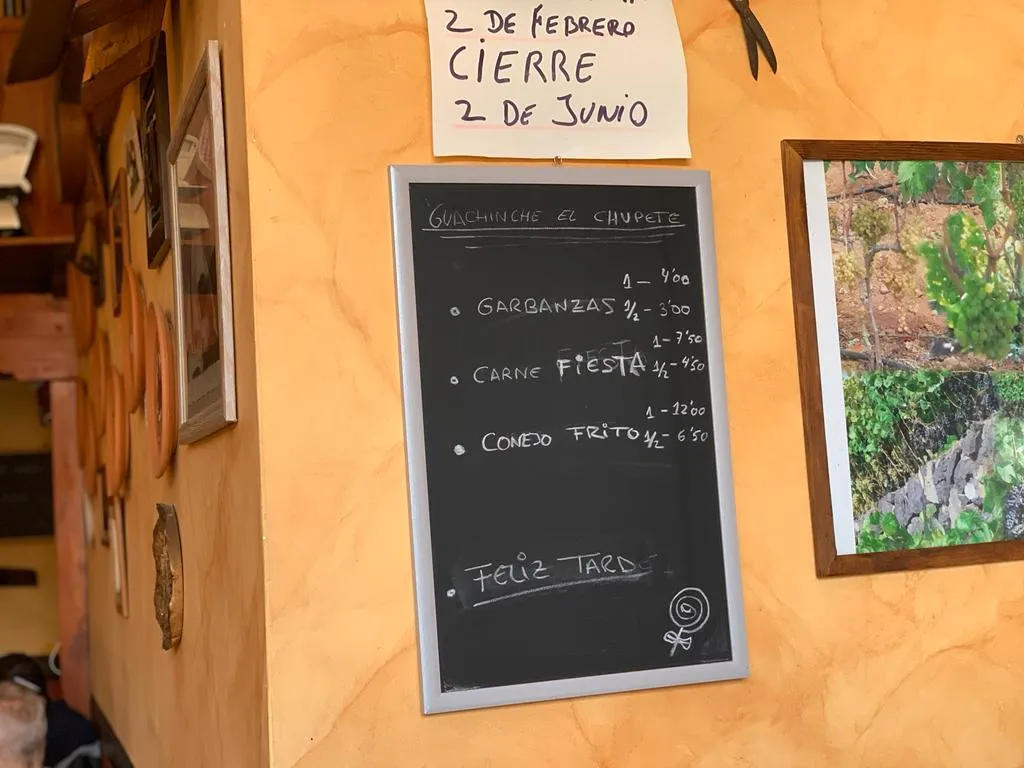 2 DE FEBRERO
CIERRE
2 DE JUNIO
GUACHINCHE EL CHUPETE
1 - 4'00
• GARBANZAS 1/2 - 3'00
1 - 7'50
• CARNE FIESTA 1/2 - 4'50
1 - 12'00
• CONEJO FRITO 1/2 - 6'50
• FELIZ TARDE